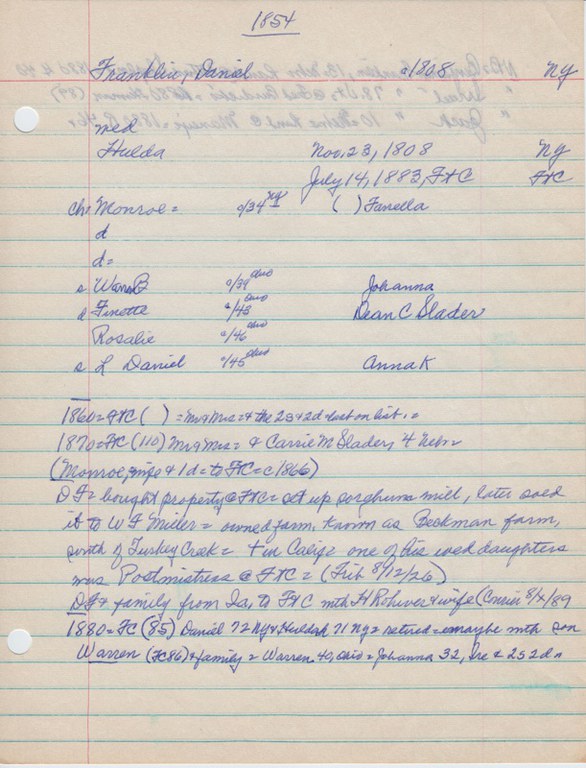 1854
Franklin, Daniel c/1808 NY
med
Hulda Nov. 23, 1808 NY
July 14, 1883, F+C F+C
Ch: Monroe = c/34 NY ( ) Fanella
d
d =
s Warren B c/39 Ohio Johanna
d Finette c/43 Ohio Dean C Slader
Rosalie c/46 Ohio
s L Daniel c/45 Ohio Anna K
1860 = F+C ( ) = Mr & Mrs = & the 2s & 2d last on list. =
1870 = FC (110) Mr & Mrs = & Carrie M Slader, 4 Nebr =
(Monroe, wife & 1d = to F+C = c/1866)
D F = bought property @ F+C = set up sorghum mill, later sold
it to W F Miller = owned farm, known as Beckman farm,
south of Turkey Creek = + in Calif = one of his daughters
was Postmistress @ F+C = (Trib 8/12/26)
D F & family from Ia, to F+C with H Rohwer & wife (8/4/89
1880 = FC (85) Daniel 72 NY & Huldah 71 NY = retired = maybe with son
Warren (FC86) & family = Warren 40, Ohio = Johanna 32, Ire & 2s 2d =